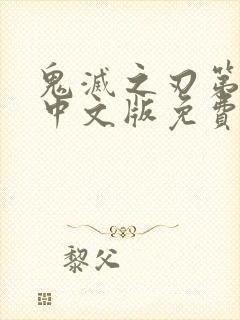 鬼滅之刃第
中文版免費
黎父